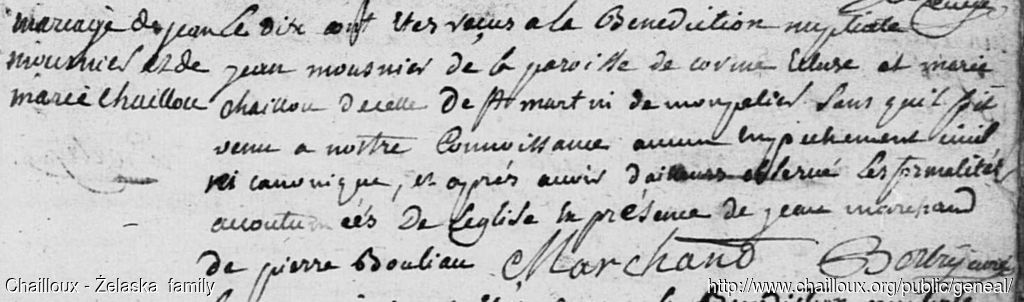 mariage de jean
mousnier et de
marie chaillou
Le dix aout etes reçus a la Benediction nuptiale
jean mousnier de la paroisse de corme Ecluse et marie
chaillou de celle De st martin de monpelier sans quil soit
venu a nottre Connoissance aucun empeichement civil
ni canonique, et après avoir d'ailleurs observé les formalités
accoutumeés De Leglise En présence de jean marchand
De pierre Bouliau Marchand
Chailloux - Żelaska family
http://www.chailloux.org/public/geneal/